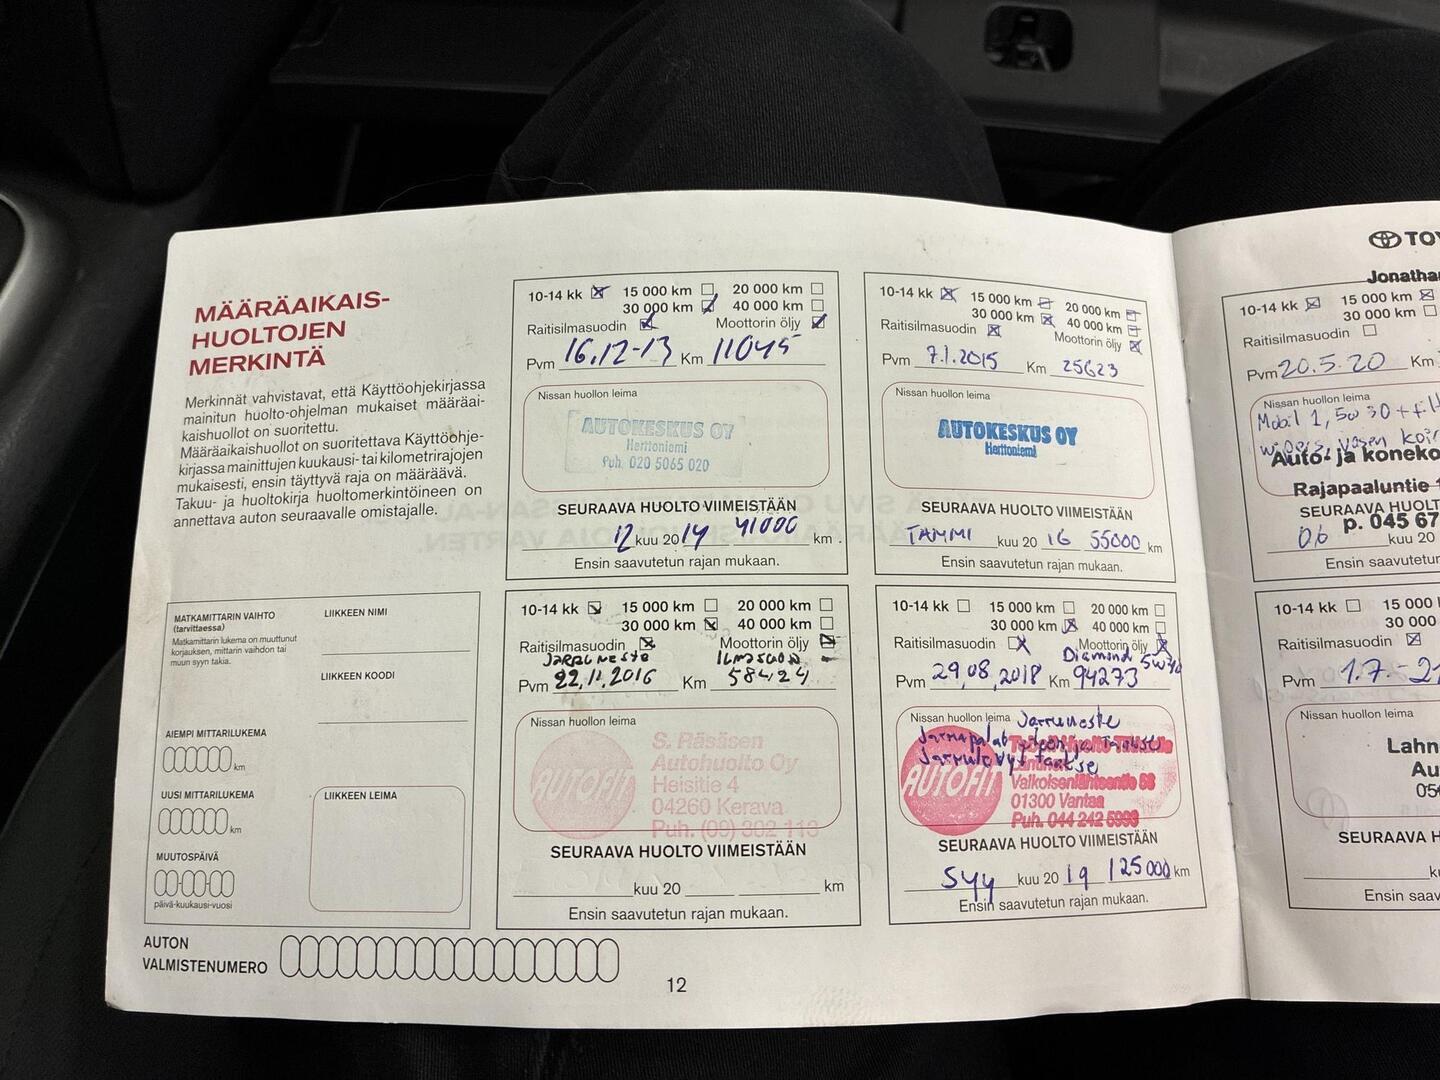 MÄÄRÄAIKAIS-
HUOLTOJEN
MERKINTÄ
Merkinnät vahvistavat, että Käyttöohjekirjassa
mainitun huolto-ohjelman mukaiset määräai-
kaishuollot on suoritettu.
Määräaikaishuollot on suoritettava Käyttöohje-
kirjassa mainittujen kuukausi- tai kilometrirajojen
mukaisesti, ensin täyttyvä raja on määräävä.
Takuu- ja huoltokirja huoltomerkintöineen on
annettava auton seuraavalle omistajalle.
MATKAMITTARIN VAIHTO
(tarvittaessa)
Matkamittarin lukema on muuttunut
korjauksen, mittarin vaihdon tai
muun syyn takia.
LIIKKEEN NIMI
LIIKKEEN KOODI
AIEMPI MITTARILUKEMA
km
UUSI MITTARILUKEMA
km
LIIKKEEN LEIMA
MUUTOSPÄIVÄ
päivä-kuukausi-vuosi
AUTON
VALMISTENUMERO
10-14 kk 15 000 km 20 000 km
30 000 km 40 000 km
Raitisilmasuodin Moottorin öljy
Pvm 16.12-13 Km 11045
Nissan huollon leima
AUTOKESKUS OY
Herttoniemi
Puh. 020 5065 020
SEURAAVA HUOLTO VIIMEISTÄÄN
12 kuu 2014 41000 km.
Ensin saavutetun rajan mukaan.
10-14 kk 15 000 km 20 000 km
30 000 km 40 000 km
Raitisilmasuodin Moottorin öljy
Pvm 7.1.2015 Km 25623
Nissan huollon leima
AUTOKESKUS OY
Herttoniemi
SEURAAVA HUOLTO VIIMEISTÄÄN
TAMMI kuu 20 16 55000 km
Ensin saavutetun rajan mukaan.
10-14 kk 15 000 km 20 000 km
30 000 km 40 000 km
Raitisilmasuodin Moottorin öljy
JARRUNESTE
Pvm 22.11.2016 Km 58424
Nissan huollon leima
AUTOFIT
S. Räsäsen
Autohuolto Oy
Heisitie 4
04260 Kerava
Puh. (09)
SEURAAVA HUOLTO VIIMEISTÄÄN
kuu 20 km
Ensin saavutetun rajan mukaan.
10-14 kk 15 000 km 20 000 km
30 000 km 40 000 km
Raitisilmasuodin Moottorin öljy
Diamond 5w30
Pvm 29.08.2018 Km 94273
Nissan huollon leima Jarruneste
Jarrupalat eteen ja Taakse
Jarrulevyt taakse
AUTOFIT
Valkoisenlähteentie 56
01300 Vantaa
Puh. 044 242
SEURAAVA HUOLTO VIIMEISTÄÄN
Syy kuu 20 19 125000 km
Ensin saavutetun rajan mukaan.
12
TOY
Jonatha
10-14 kk 15 000 km
30 000 km
Raitisilmasuodin
Pvm 20.5.20 Km
Nissan huollon leima
Mobil 1, 5w30
Auto- ja koneko
Rajapaaluntie 1
SEURAAVA HUOLT
p. 045 67
06 kuu 20
Ensin saavutetun
10-14 kk 15 000
30 000
Raitisilmasuodin
Pvm 1.7.-21
Nissan huollon leima
Lahn
Au
050
SEURAAVA HU
ku
Ensin saavute